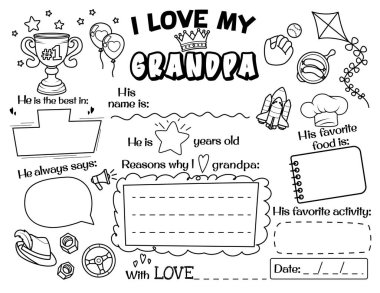 I LOVE MY
GRANDPA
#1
He is the best in:
His
name is:
He is years old
His favorite
food is:
He always says:
Reasons why I grandpa:
His favorite activity:
With LOVE
Date: _/_/_.